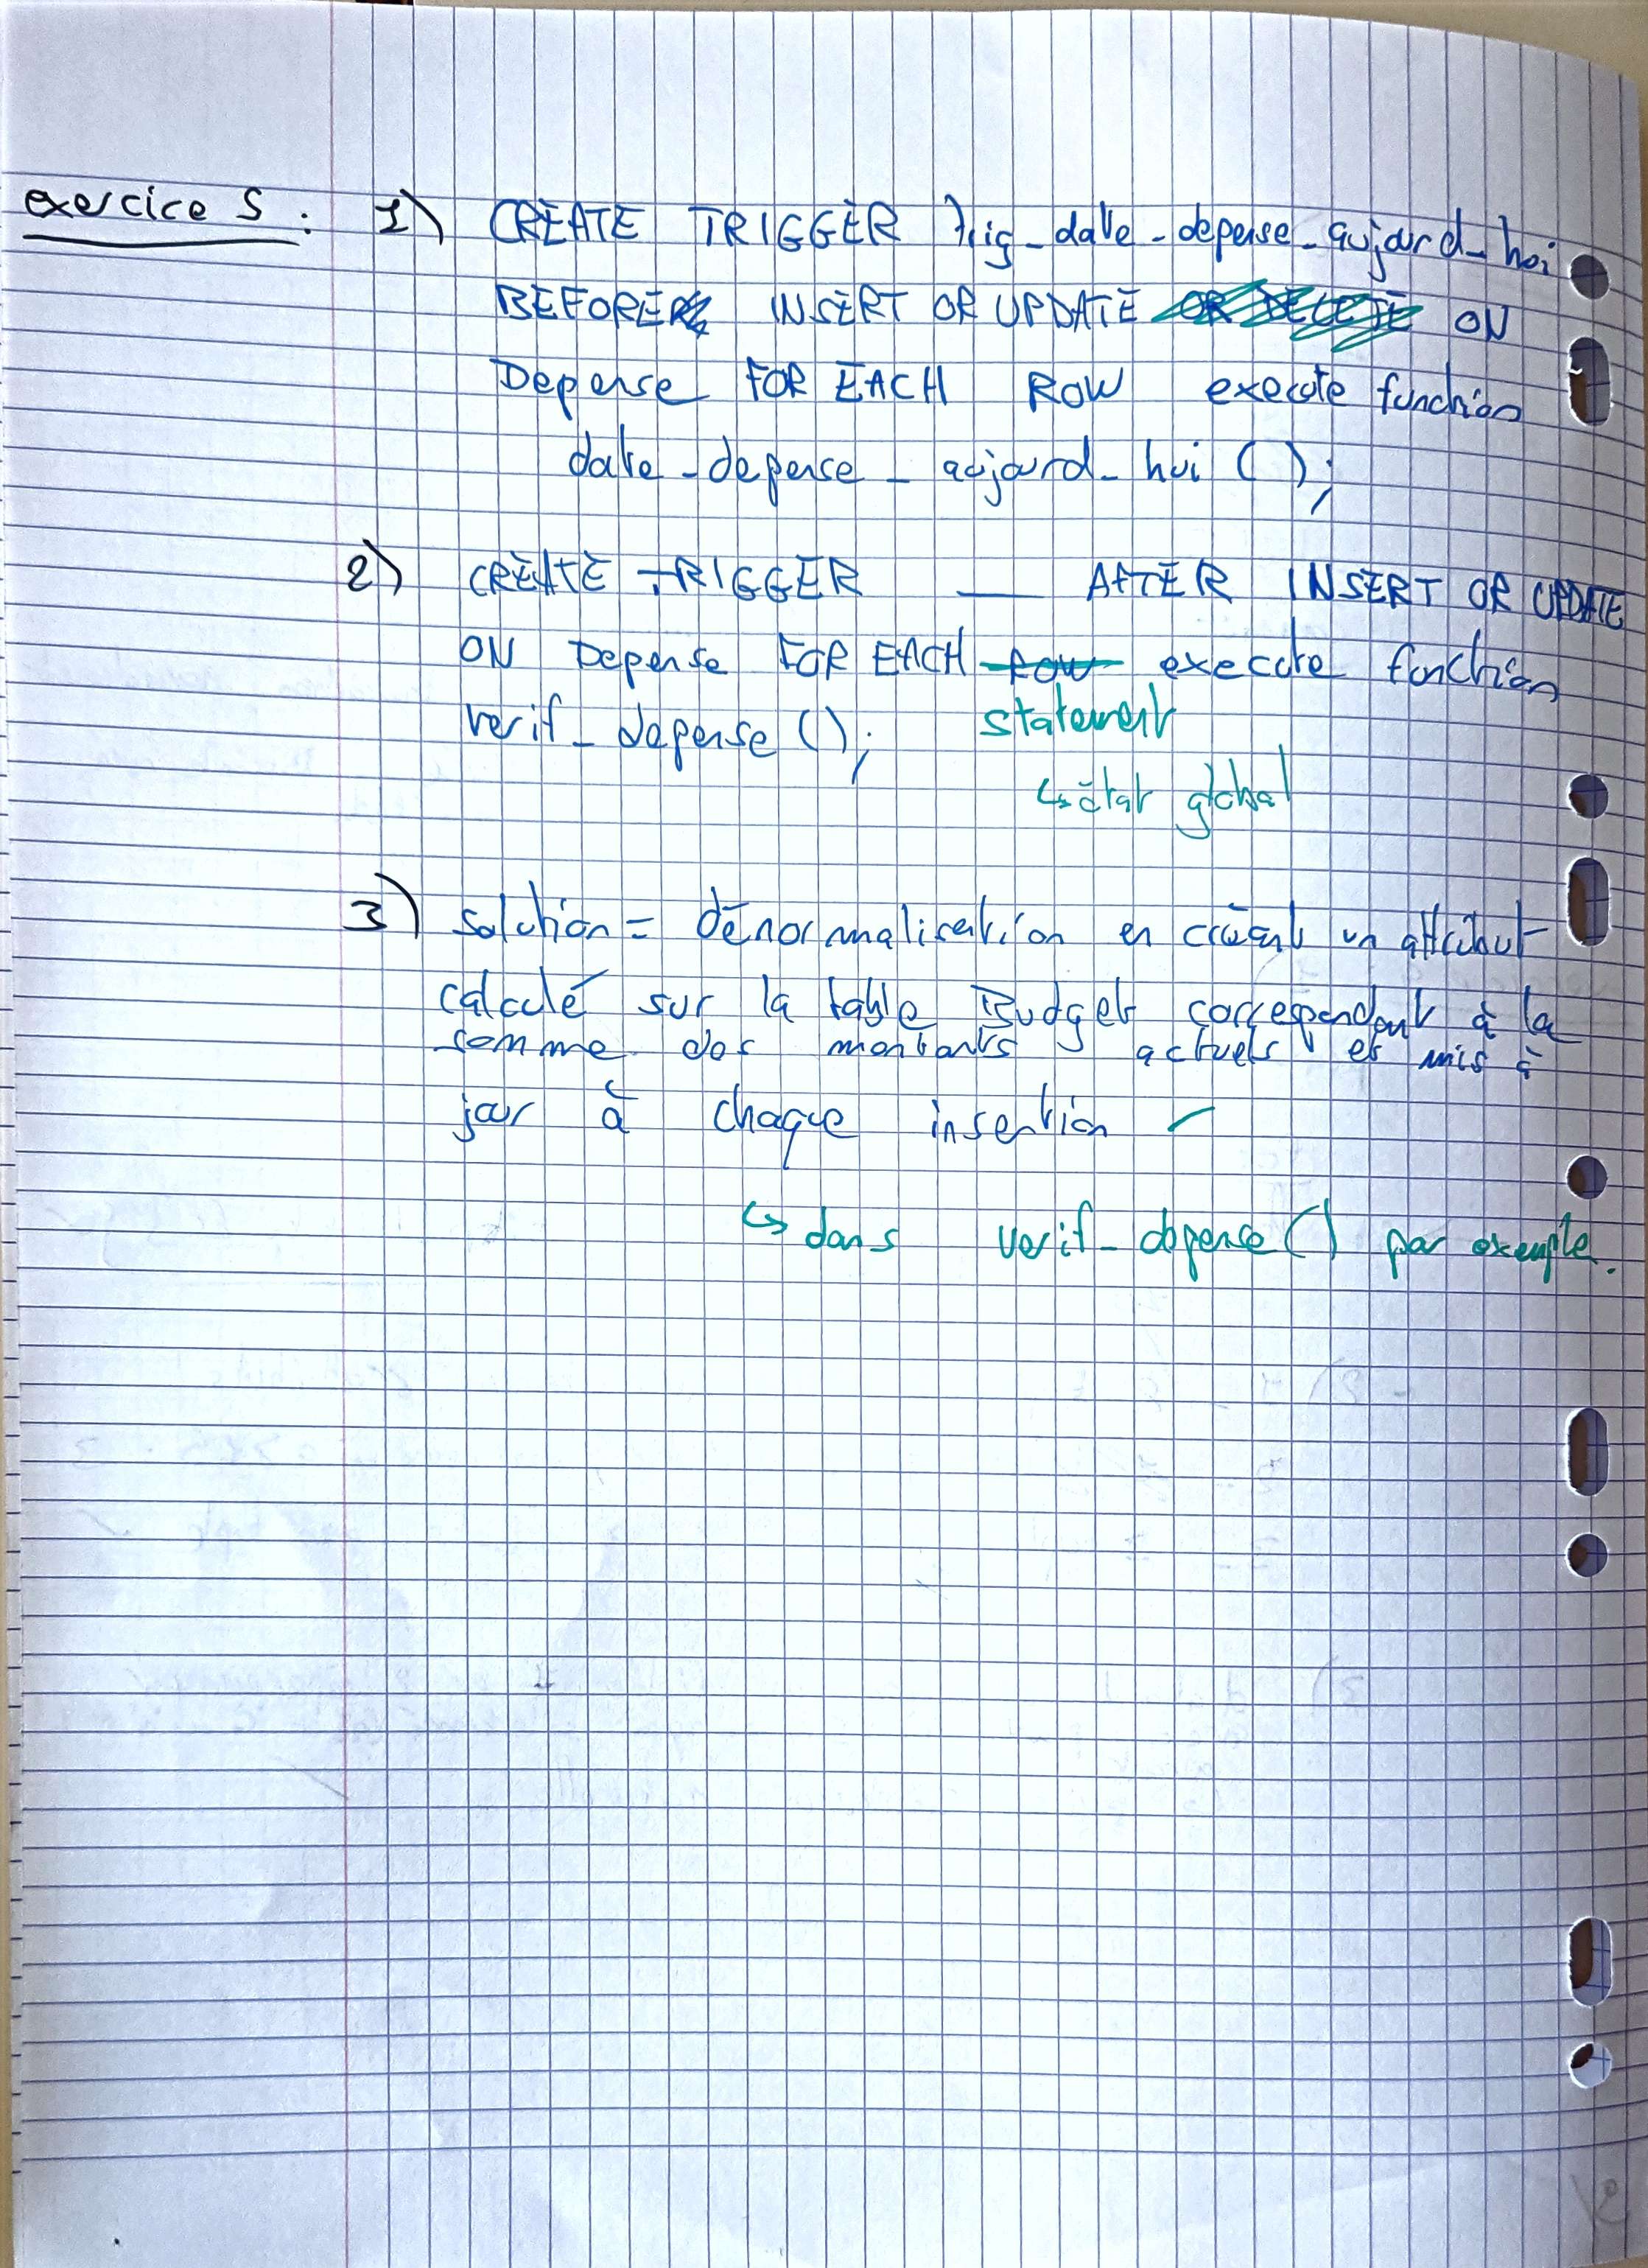 exercice 5 : 1) CREATE TRIGGER trig_date_depense_aujourd_hui
BEFORE INSERT OR UPDATE OR DELETE ON
Depense FOR EACH ROW execute function
date_depense_aujourd_hui ();
2) CREATE TRIGGER ___ AFTER INSERT OR UPDATE
ON Depense FOR EACH row execute function
verif_depense (); statement
↳ état global
3) solution = dénormalisation en créant un attribut
calculé sur la table Budget correspondant à la
somme des montants actuels et mis à
jour à chaque insertion
↳ dans verif_depense() par exemple.